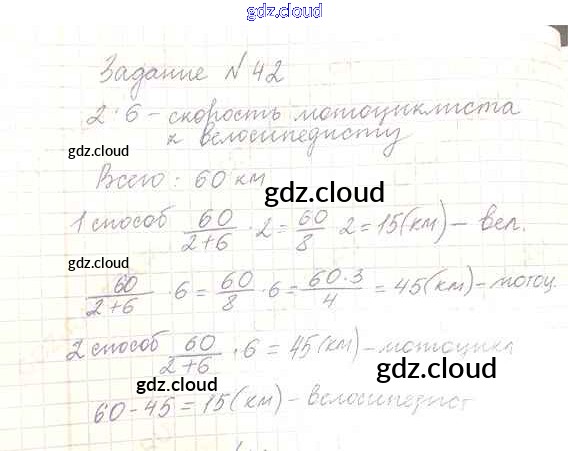 gdz.cloud
Задание № 42
2 · 6 - скорость мотоциклиста
к велосипедисту
gdz.cloud
Всего : 60 км
gdz.cloud
1 способ 60/2+6 · 2 = 60/8 2 = 15(км) - вел.
gdz.cloud
60/2+6 · 6 = 60/8 · 6 = 60·3/4 = 45(км) - мотоц.
2 способ 60/2+6 · 6 = 45(км) - мотоцикл
gdz.cloud
gdz.cloud
60 - 45 = 15(км) - велосипедист